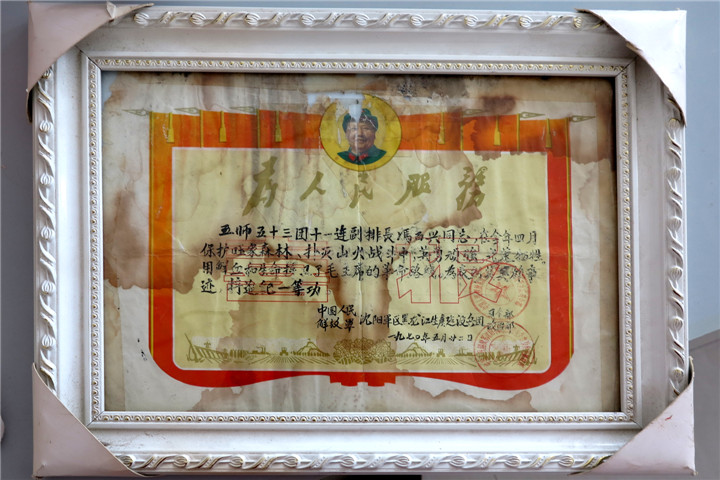 为人民服务
五师五十三团十一连副排長馮而兴同志,於今年四月
保护国家森林、扑灭山火战斗中,英勇顽强,
用鲜血和生命捍卫了毛主席的革命路线,为
迹,特追记一等功
中国人民
解放軍 沈阳軍区黑龙江生产建設兵团
一九七〇年五月廿二日